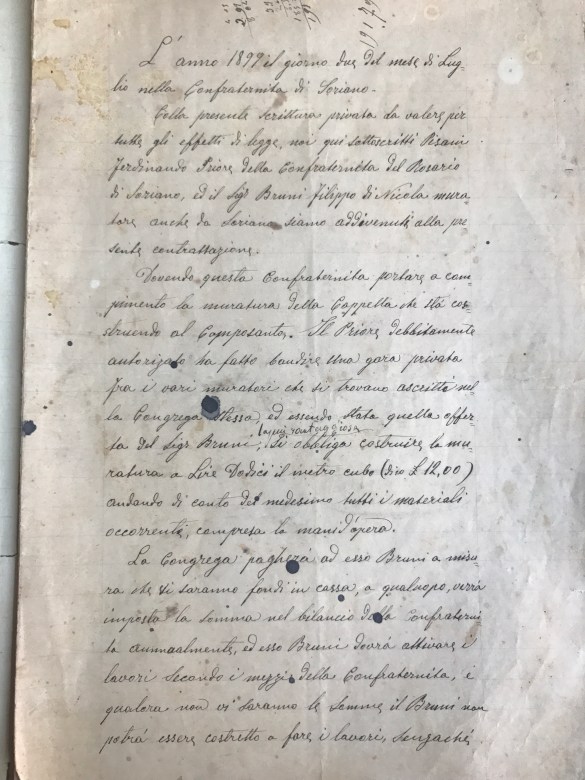 L'anno 1899 il giorno due del mese di Lug-
lio nella Confraternita di Soriano.
Colla presente scrittura privata da valere per
tutti gli effetti di legge, noi qui sottoscritti Pisani
Ferdinando Priore della Confraternita del Rosario
di Soriano, ed il Sigr Bruni Filippo di Nicola mura-
tore anche da Soriano siamo addivenuti alla pre
sente contrattazione.
Dovendo questa Confraternita portare a com-
pimento la muratura della Cappella che sta co-
struendo al Camposanto, Il Priore debbitamente
autorizato ha fatto bandire una gara privata
fra i vari muratori che si trovano ascritti nel
la Congrega stessa, ed essendo stata quella offer-
la più vantaggiosa
ta del Sigr Bruni, si obbliga costruire la mu-
ratura a Lire Dodici il metro cubo (dico £ 12,00)
andando di conto del medesimo tutti i materiali
occorrenti, compresa la mano d'opera.
La Congrega pagherà ad esso Bruni a misu-
ra che vi saranno fondi in cassa, a qualuopo, verrà
imposta la somma nel bilancio della Confraterni-
ta annualmente, ed esso Bruni dovrà attivare i
lavori secondo i mezzi della Confraternita, e
qualora non vi saranno le somme il Bruni non
potrà essere costretto a fare i lavori, senzachè